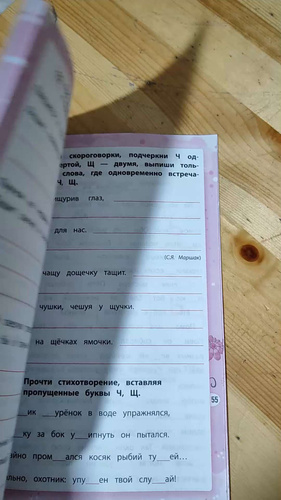 скороговорки, подчеркни Ч од-
ертой, Щ — двумя, выпиши толь-
слова, где одновременно встреча-
Ч, Щ.
ищурив глаз,
для нас.
(С.Я. Маршак)
чащу дощечку тащит.
чушки, чешуя у щучки.
на щёчках ямочки.
Прочти стихотворение, вставляя
пропущенные буквы Ч, Щ.
ик ___урёнок в воде упражнялся,
ку за бок у___ипнуть он пытался.
айно пром___ался косяк рыбий ту___ей...
ально, охотник: упу___ен твой слу___ай!
55